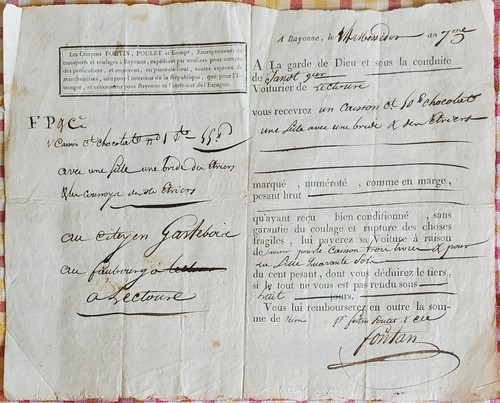 Les Citoyens FORTIN, POULET et Compe, Entrepreneurs de
transports et roulages à Bayonne, expédient par rouliers pour compte
des particuliers, et reçoivent, en passe-debout, toutes espèces de
marchandises, tant pour l'intérieur de la République, que pour l'É-
tranger, et notamment pour Bayonne et l'intérieur de l'Espagne.
F P & Cie
1 Caisson Ct chocolat
avec une selle une bride des étriers
de étriers
au citoyen
au faubourg
a Lectoure
A Bayonne, le 14 Messidor an 7me
A La garde de Dieu et sous la conduite
de
Voiturier de Lectoure
vous recevrez un Caisson Ct chocolat
une selle avec une bride & des étriers
marqué, numéroté, comme en marge,
pesant brut
qu'ayant reçu bien conditionné, sans
garantie du coulage et rupture des choses
fragiles, lui payerez sa Voiture à raison
de savoir pour le Caisson trois livres & pour
la selle quarante sols
du cent pesant, dont vous déduirez le tiers,
si le tout ne vous est pas rendu sous
huit jours.
Vous lui rembourserez en outre la som-
me de rien pr fortin Poulet & Cie
fontan